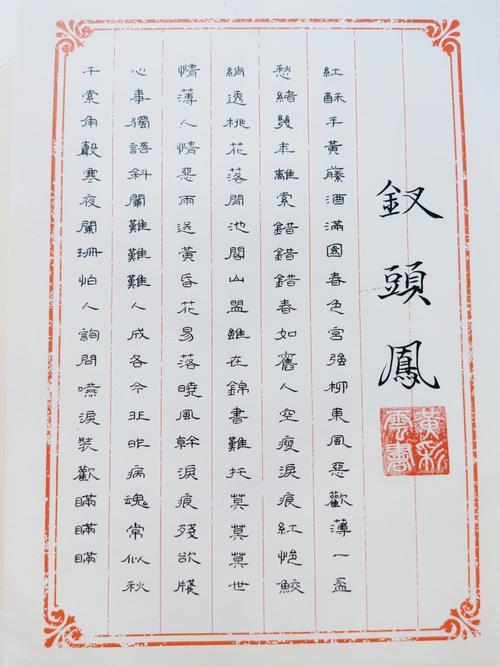 釵頭鳳
黃彩雲書
紅酥手黃藤酒滿園春色宮強柳東風惡歡薄一盃
愁緒幾年離索錯錯錯春如舊人空瘦淚痕紅悒鮫
綃透桃花落閒池閣山盟雖在錦書難托莫莫莫世
情薄人情惡雨送黃昏花易落曉風幹淚痕殘欲牋
心事獨語斜闌難難難人成各今非昨病魂常似秋
千索角聲寒夜闌珊怕人詢問嚥淚裝歡瞞瞞瞞